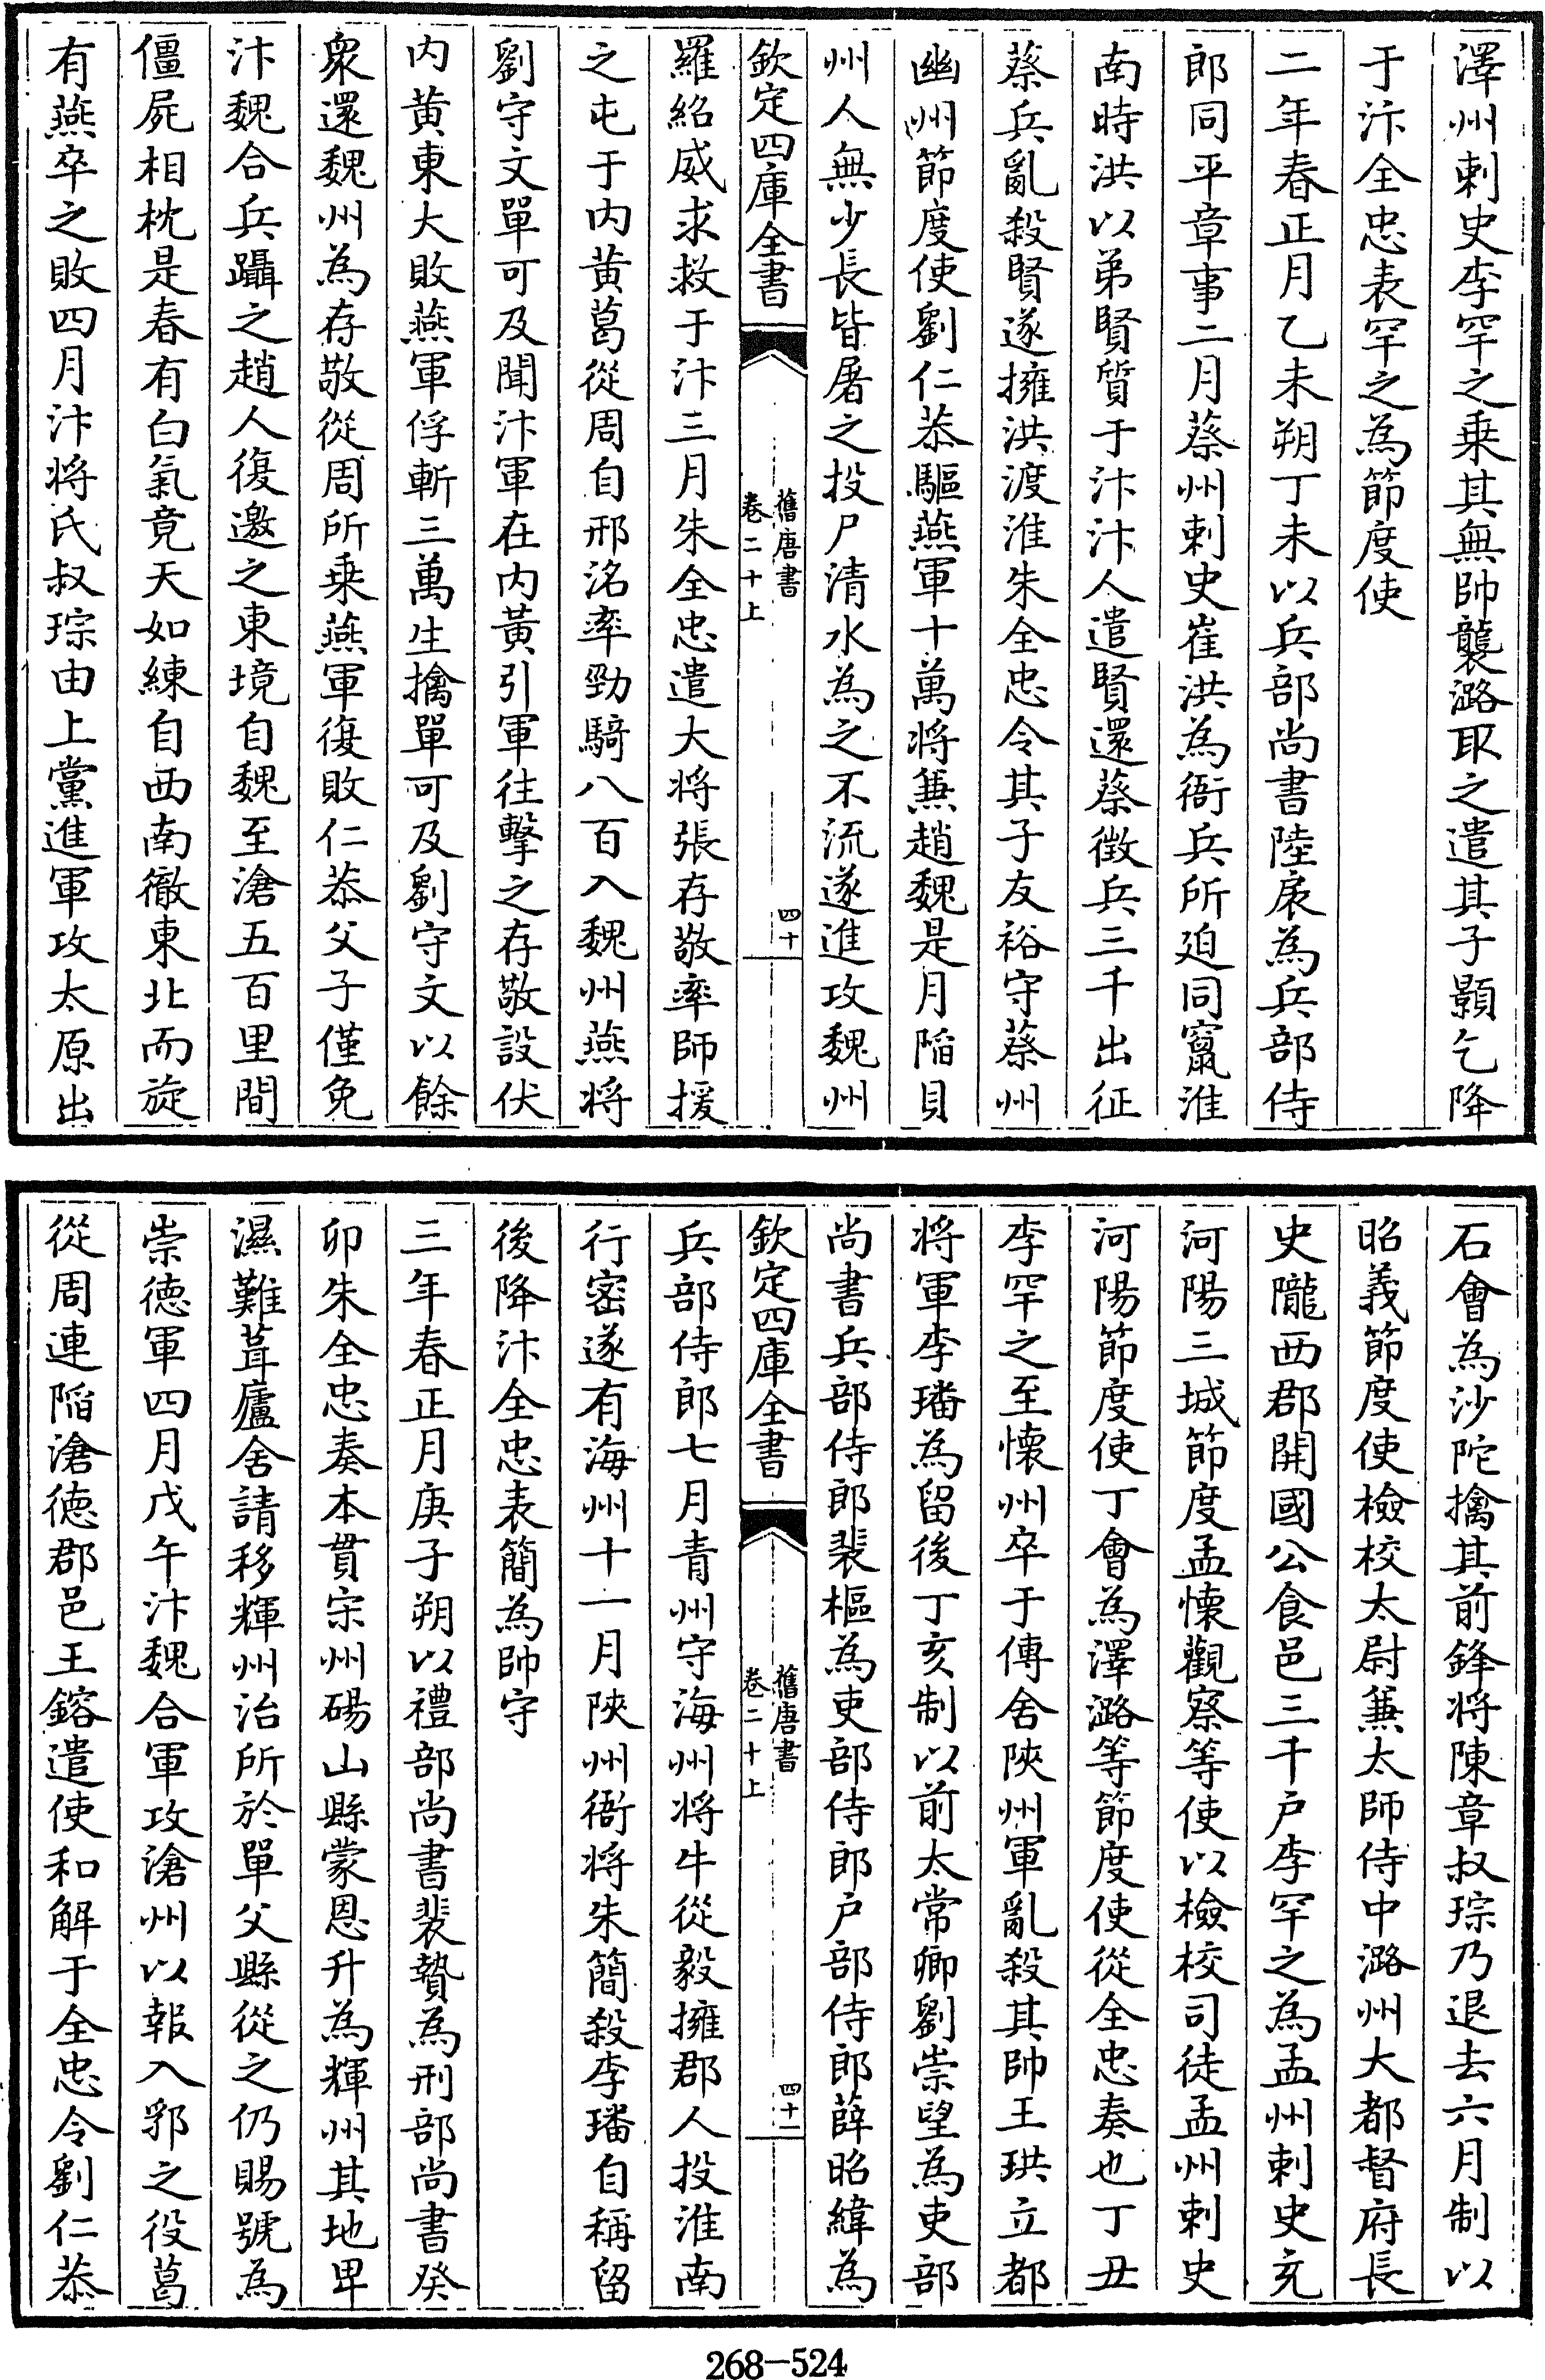 澤州刺史李罕之乗其無帥襲潞取之遣其子顥乞降
于汴全忠表罕之為節度使
二年春正月乙未朔丁未以兵部尚書陸扆為兵部侍
郎同平章事二月蔡州刺史崔洪為衙兵所廹同竄淮
南時洪以弟賢質于汴汴人遣賢還蔡徴兵三千出征
蔡兵亂殺賢遂擁洪渡淮朱全忠令其子友裕守蔡州
幽州節度使劉仁恭驅燕軍十萬将兼趙魏是月陷貝
州人無少長皆屠之投尸清水為之不流遂進攻魏州
欽定四庫全書
舊唐書
卷二十上
四十
羅紹威求救于汴三月朱全忠遣大将張存敬率師援
之屯于内黄葛從周自邢洺率勁騎八百入魏州燕将
劉守文單可及聞汴軍在内黄引軍往擊之存敬設伏
内黄東大敗燕軍俘斬三萬生擒單可及劉守文以餘
衆還魏州為存敬從周所乗燕軍復敗仁恭父子僅免
汴魏合兵躡之趙人復邀之東境自魏至滄五百里間
僵屍相枕是春有白氣竟天如練自西南徹東北而旋
有燕卒之敗四月汴将氏叔琮由上黨進軍攻太原出
石會為沙陀擒其前鋒将陳章叔琮乃退去六月制以
昭義節度使檢校太尉兼太師侍中潞州大都督府長
史隴西郡開國公食邑三千户李罕之為孟州刺史充
河陽三城節度孟懷觀察等使以檢校司徒孟州刺史
河陽節度使丁會為澤潞等節度使從全忠奏也丁丑
李罕之至懷州卒于傳舍陜州軍亂殺其帥王珙立都
将軍李璠為留後丁亥制以前太常卿劉崇望為吏部
尚書兵部侍郎裴樞為吏部侍郎户部侍郎薛昭緯為
欽定四庫全書
舊唐書
卷二十上
四十一
兵部侍郎七月青州守海州将牛從毅擁郡人投淮南
行密遂有海州十一月陜州衙将朱簡殺李璠自稱留
後降汴全忠表簡為帥守
三年春正月庚子朔以禮部尚書裴贄為刑部尚書癸
卯朱全忠奏本貫宋州碭山縣蒙恩升為輝州其地卑
濕難葺廬舍請移輝州治所於單父縣從之仍賜號為
崇徳軍四月戊午汴魏合軍攻滄州以報入邢之役葛
從周連陷滄徳郡邑王鎔遣使和解于全忠令劉仁恭
268-524